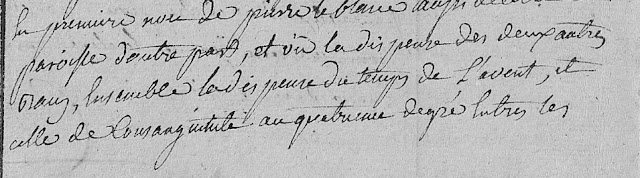 la première nore de pierre le blanc aussi
paroisse d'autre part, et vu la dispense des deux autres
bans, Ensemble la dispense du temps de L'avent, et
celle de Consanguinité au quatrieme degré Entres les